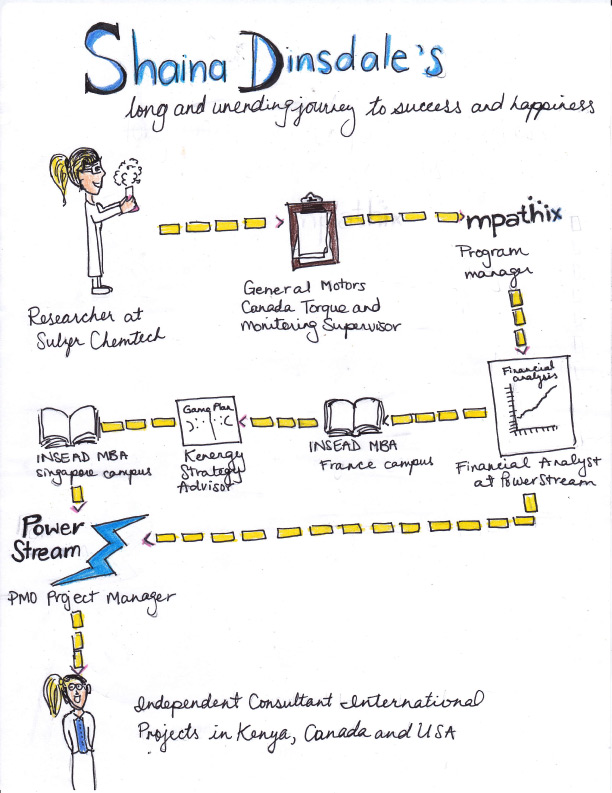 Shaina Dinsdale's
long and unending journey to success and happiness
Researcher at
Sulzr Chemtech
General Motors
Canada Torque and
Monitoring Supervisor
mpathix
Program
manager
Financial
analysis
Financial Analyst
at PowerStream
INSEAD MBA
France campus
Game Plan
Kenergy
Strategy
Advisor
INSEAD MBA
Singapore campus
Power
Stream
PMO Project Manager
Independent Consultant International
Projects in Kenya, Canada and USA